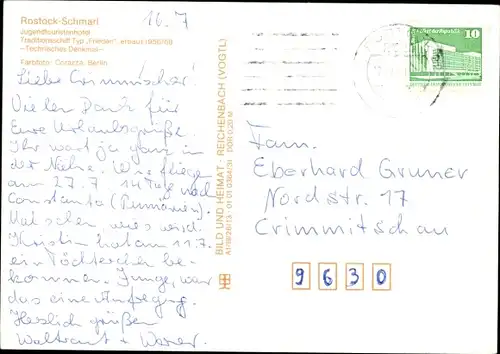 Rostock-Schmarl
Jugendtouristenhotel
Traditionsschiff Typ „Frieden", erbaut 1956/58
-Technisches Denkmal-
Farbfoto: Corazza, Berlin
16.7
Liebe Crimmischer!
Vielen Dank für
Eure Urlaubsgrüße.
Ihr wart ja ganz in
der Nähe. Wir fliegen
am 27.7 14 Tag nach
Constanta (Rumänien).
Mal sehen wies wird.
Kristin hat am 11.7.
ein Töchterchen be-
kommen. Junge, war
das eine Aufregung.
Herzlich grüßen
Waltraut +
BILD UND HEIMAT · REICHENBACH (VOGTL)
DDR 0,20 M
10
Fam.
Eberhard Gruner
Nordstr. 17
Crimmitschau
9630